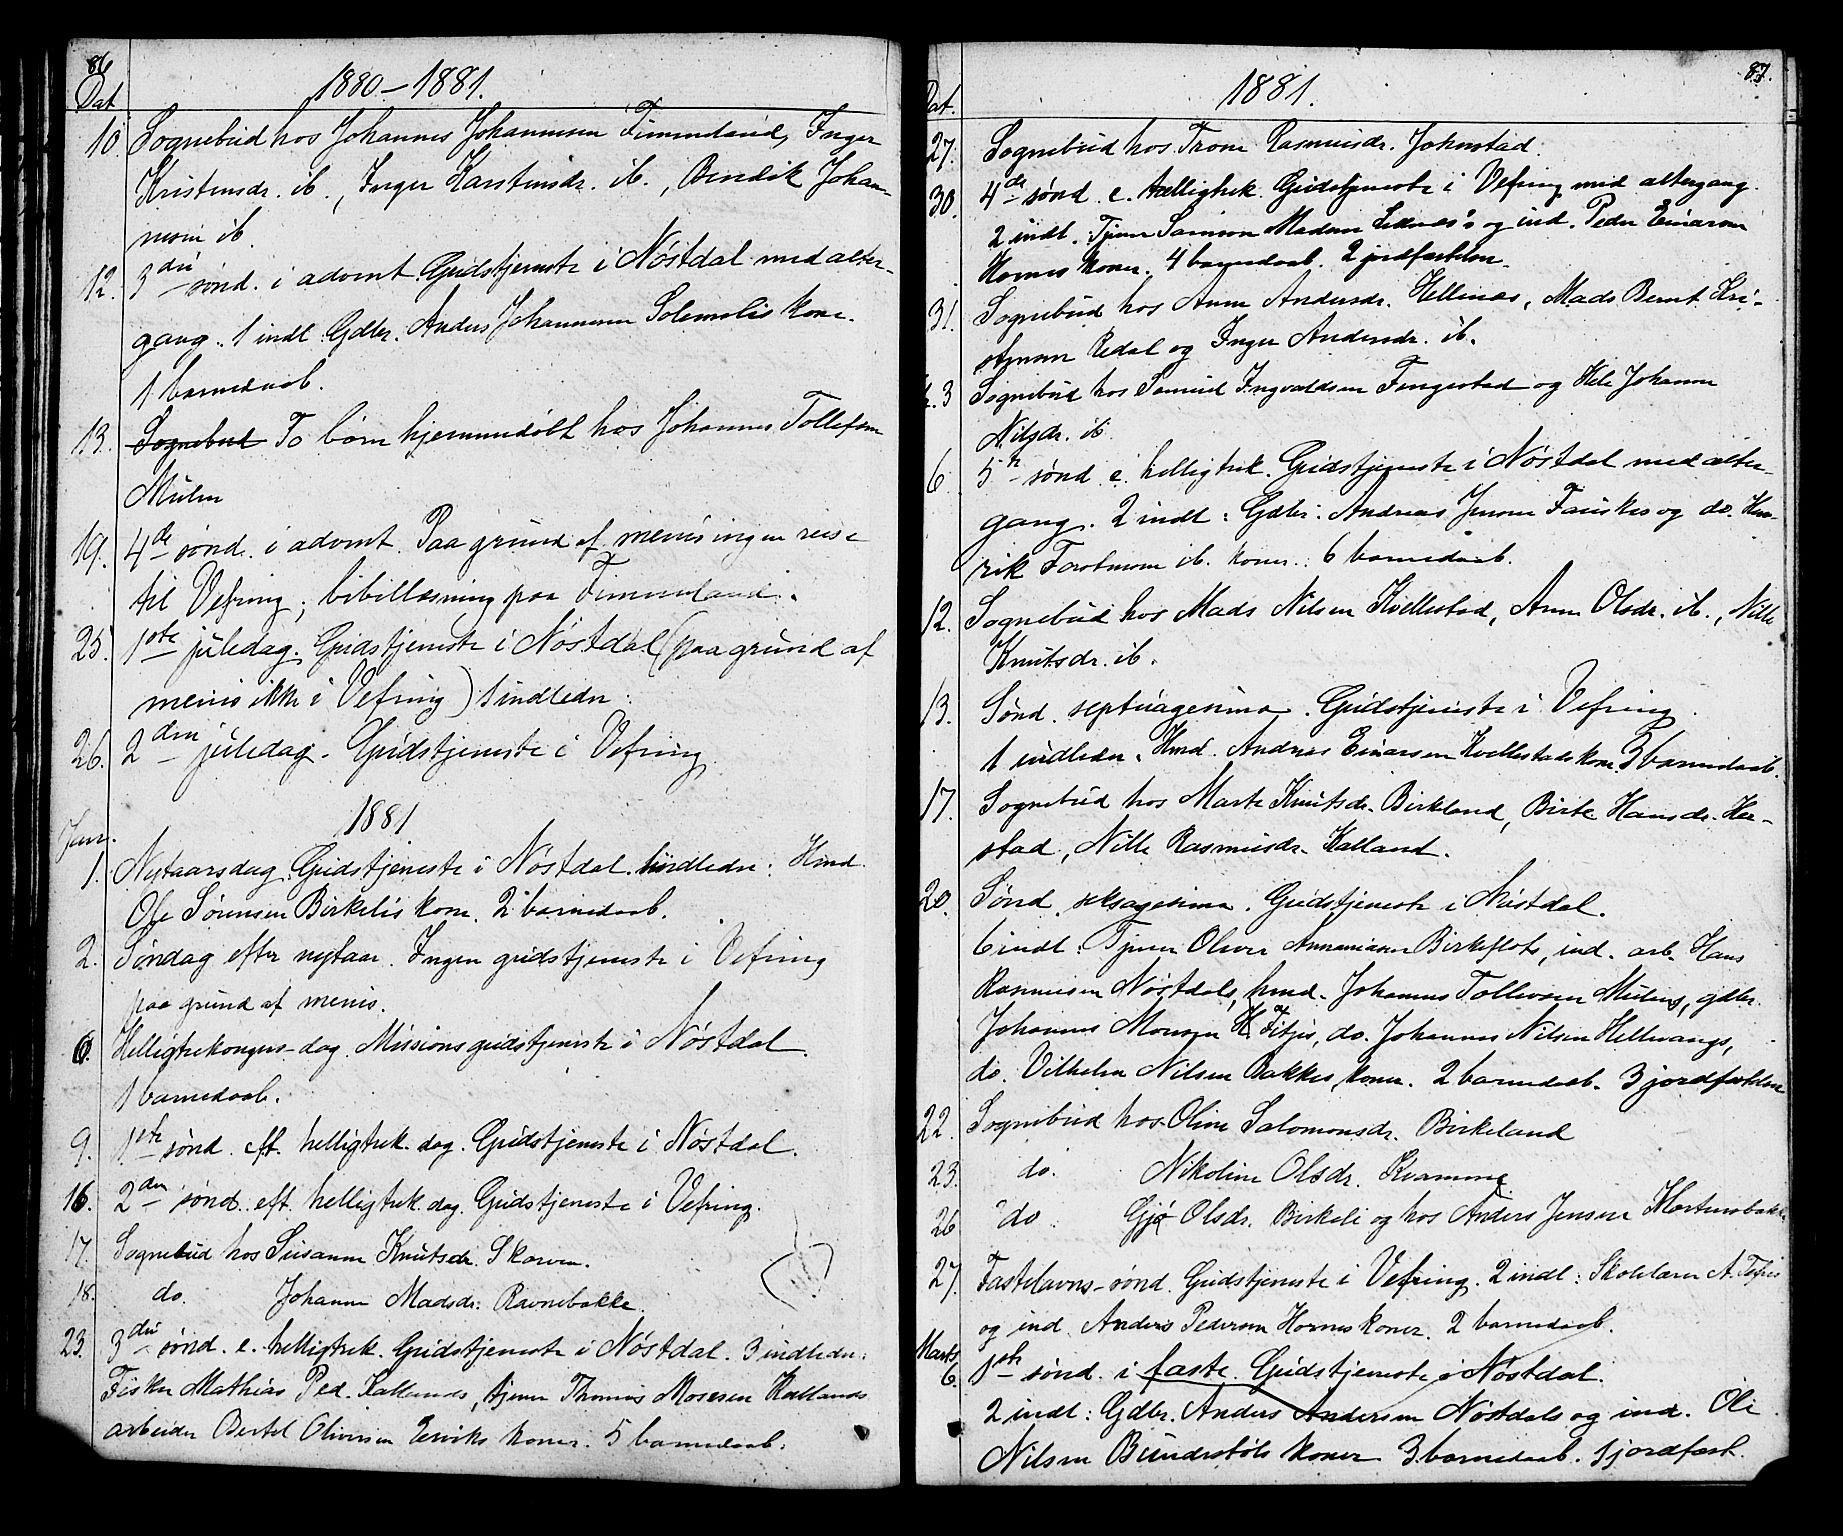 86
Dat.
1880–1881.
10. Sognebud hos Johannes Johannesen Timmeland, Inger
Kristensdr. ib., Inger Karstensdr. ib., Bendik Johan-
nesen ib.
12. 3die sønd. i advent. Gudstjeneste i Nöstdal med alter-
gang. 1 indl. Gdbr. Anders Johannesen Solemslis kone.
1 barnedaab.
13. Sognebud To börn hjemmedöbt hos Johannes Tollefsen
Mulen
19. 4de sønd. i advent. Paa grund af menis ingen reise
til Vefring; bibellæsning paa Timmeland.
25. 1ste juledag. Gudstjeneste i Nöstdal (paa grund af
menis ikke i Vefring) 1 indleder.
26. 2den juledag. Gudstjeneste i Vefring
1881
Jan.
1. Nytaarsdag. Gudstjeneste i Nöstdal. 1 indleder: Hmd.
Ole Sørensen Birkelis kone. 2 barnedaab.
2. Söndag efter nytaar. Ingen gudstjeneste i Vefring
paa grund af menis.
6. Helligtrekongers-dag. Missionsgudstjeneste i Nöstdal.
1 barnedaab.
9. 1ste sønd. eft. helligtrek. dag. Gudstjeneste i Nöstdal.
16. 2den sønd. eft. helligtrek. dag. Gudstjeneste i Vefring.
17. Sognebud hos Susanne Knutsdr. Skorven.
18. do. Johanne Madsdr. Ravnebakke.
23. 3die sønd. e. helligtrek. Gudstjeneste i Nöstdal. 3 indleder:
Fisker Mathias Ped. Kallands, tjener Thomas Mosesen Kallands
arbeider Bertel Oliversen koner. 5 barnedaab.
87.
Dat.
1881.
27. Sognebud hos Trone Rasmusdr. Johnstad.
30. 4de sønd. e. helligtrek. Gudstjeneste i Vefring med altergang.
2 indl. Tjener Samson Madsen og ind. Peder Einarsen
Hornes koner. 4 barnedaab. 2 jordfæstelser.
31. Sognebud hos Anne Andersdr. Hellenes, Mads Bernt Kri-
stensen Redal og Inger Andersdr. ib.
3 Sognebud hos Samuel Ingvaldsen Fengestad og Johanne
Nilsdr. ib.
6. 5te sønd. e. helligtrek. Gudstjeneste i Nöstdal med alter-
gang. 2 indl.: Gdbr. Andreas Jensen Fauskes og do. Hen-
rik ib. koner.: 6 barnedaab.
12. Sognebud hos Mads Nilsen Kvellestad, Anne Olsdr. ib., Nille
Knutsdr. ib.
13. Sønd. septuagesima. Gudstjeneste i Vefring.
1 indleder. Hmd. Andreas Einarsen Kvellestads kone. 3 barnedaab.
17. Sognebud hos Marte Knutsdr. Birkeland, Birte Hansdr. Her-
stad, Nille Rasmusdr. Kalland.
20. Sønd. seksagesima. Gudstjeneste i Nöstdal.
6 indl. Tjener Oliver Annaniasen Birkeflots, ind. arb. Hans
Rasmusen Nöstdals, hmd. Johannes Tollevsen Mulens, gdbr.
Johannes Monsen Fitjes, do. Johannes Nilsen Hellevangs,
do. Vilhelm Nilsen Bakkes koner. 2 barnedaab. 3 jordfæstelser
22. Sognebud hos Oline Salomonsdr. Birkeland
23. do. Nikoline Olsdr. Kvamme
26 do. Gjø Olsdr. Birkeli og hos Anders Jensen Martensbakke
27. Fastelavns-sønd. Gudstjeneste i Vefring. 2 indl.: Skolelærer A. Fitjes
og ind. Anders Pedersen Hornes koner. 2 barnedaab.
Marts
6. 1ste sønd. i faste. Gudstjeneste i Nöstdal.
2 indl: Gdbr. Anders Andersen Nöstdals og ind. Ole
Nilsen Bundestöls koner 3 barnedaab. 1 jordfæst.